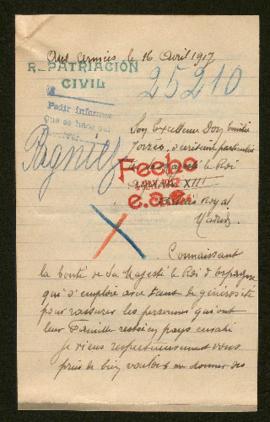 Aux Armées, le 16 Avril 1917
REPATRIACIÓN
CIVIL
25210
Pedir informes
que se hace
Pagniez
Son Excellence Don Emilio
Torrès, Secrétaire particulier
le Roi
Fecho
XIII
e.a.e.
Palais Royal
Madrid
Connaissant
la bonté de Sa Majesté le Roi d'Espagne
qui s'emploie avec tant de générosité
pour rassurer les personnes qui ont
leur Famille restée en pays envahi
je viens respectueusement vous
prier de bien vouloir me donner des